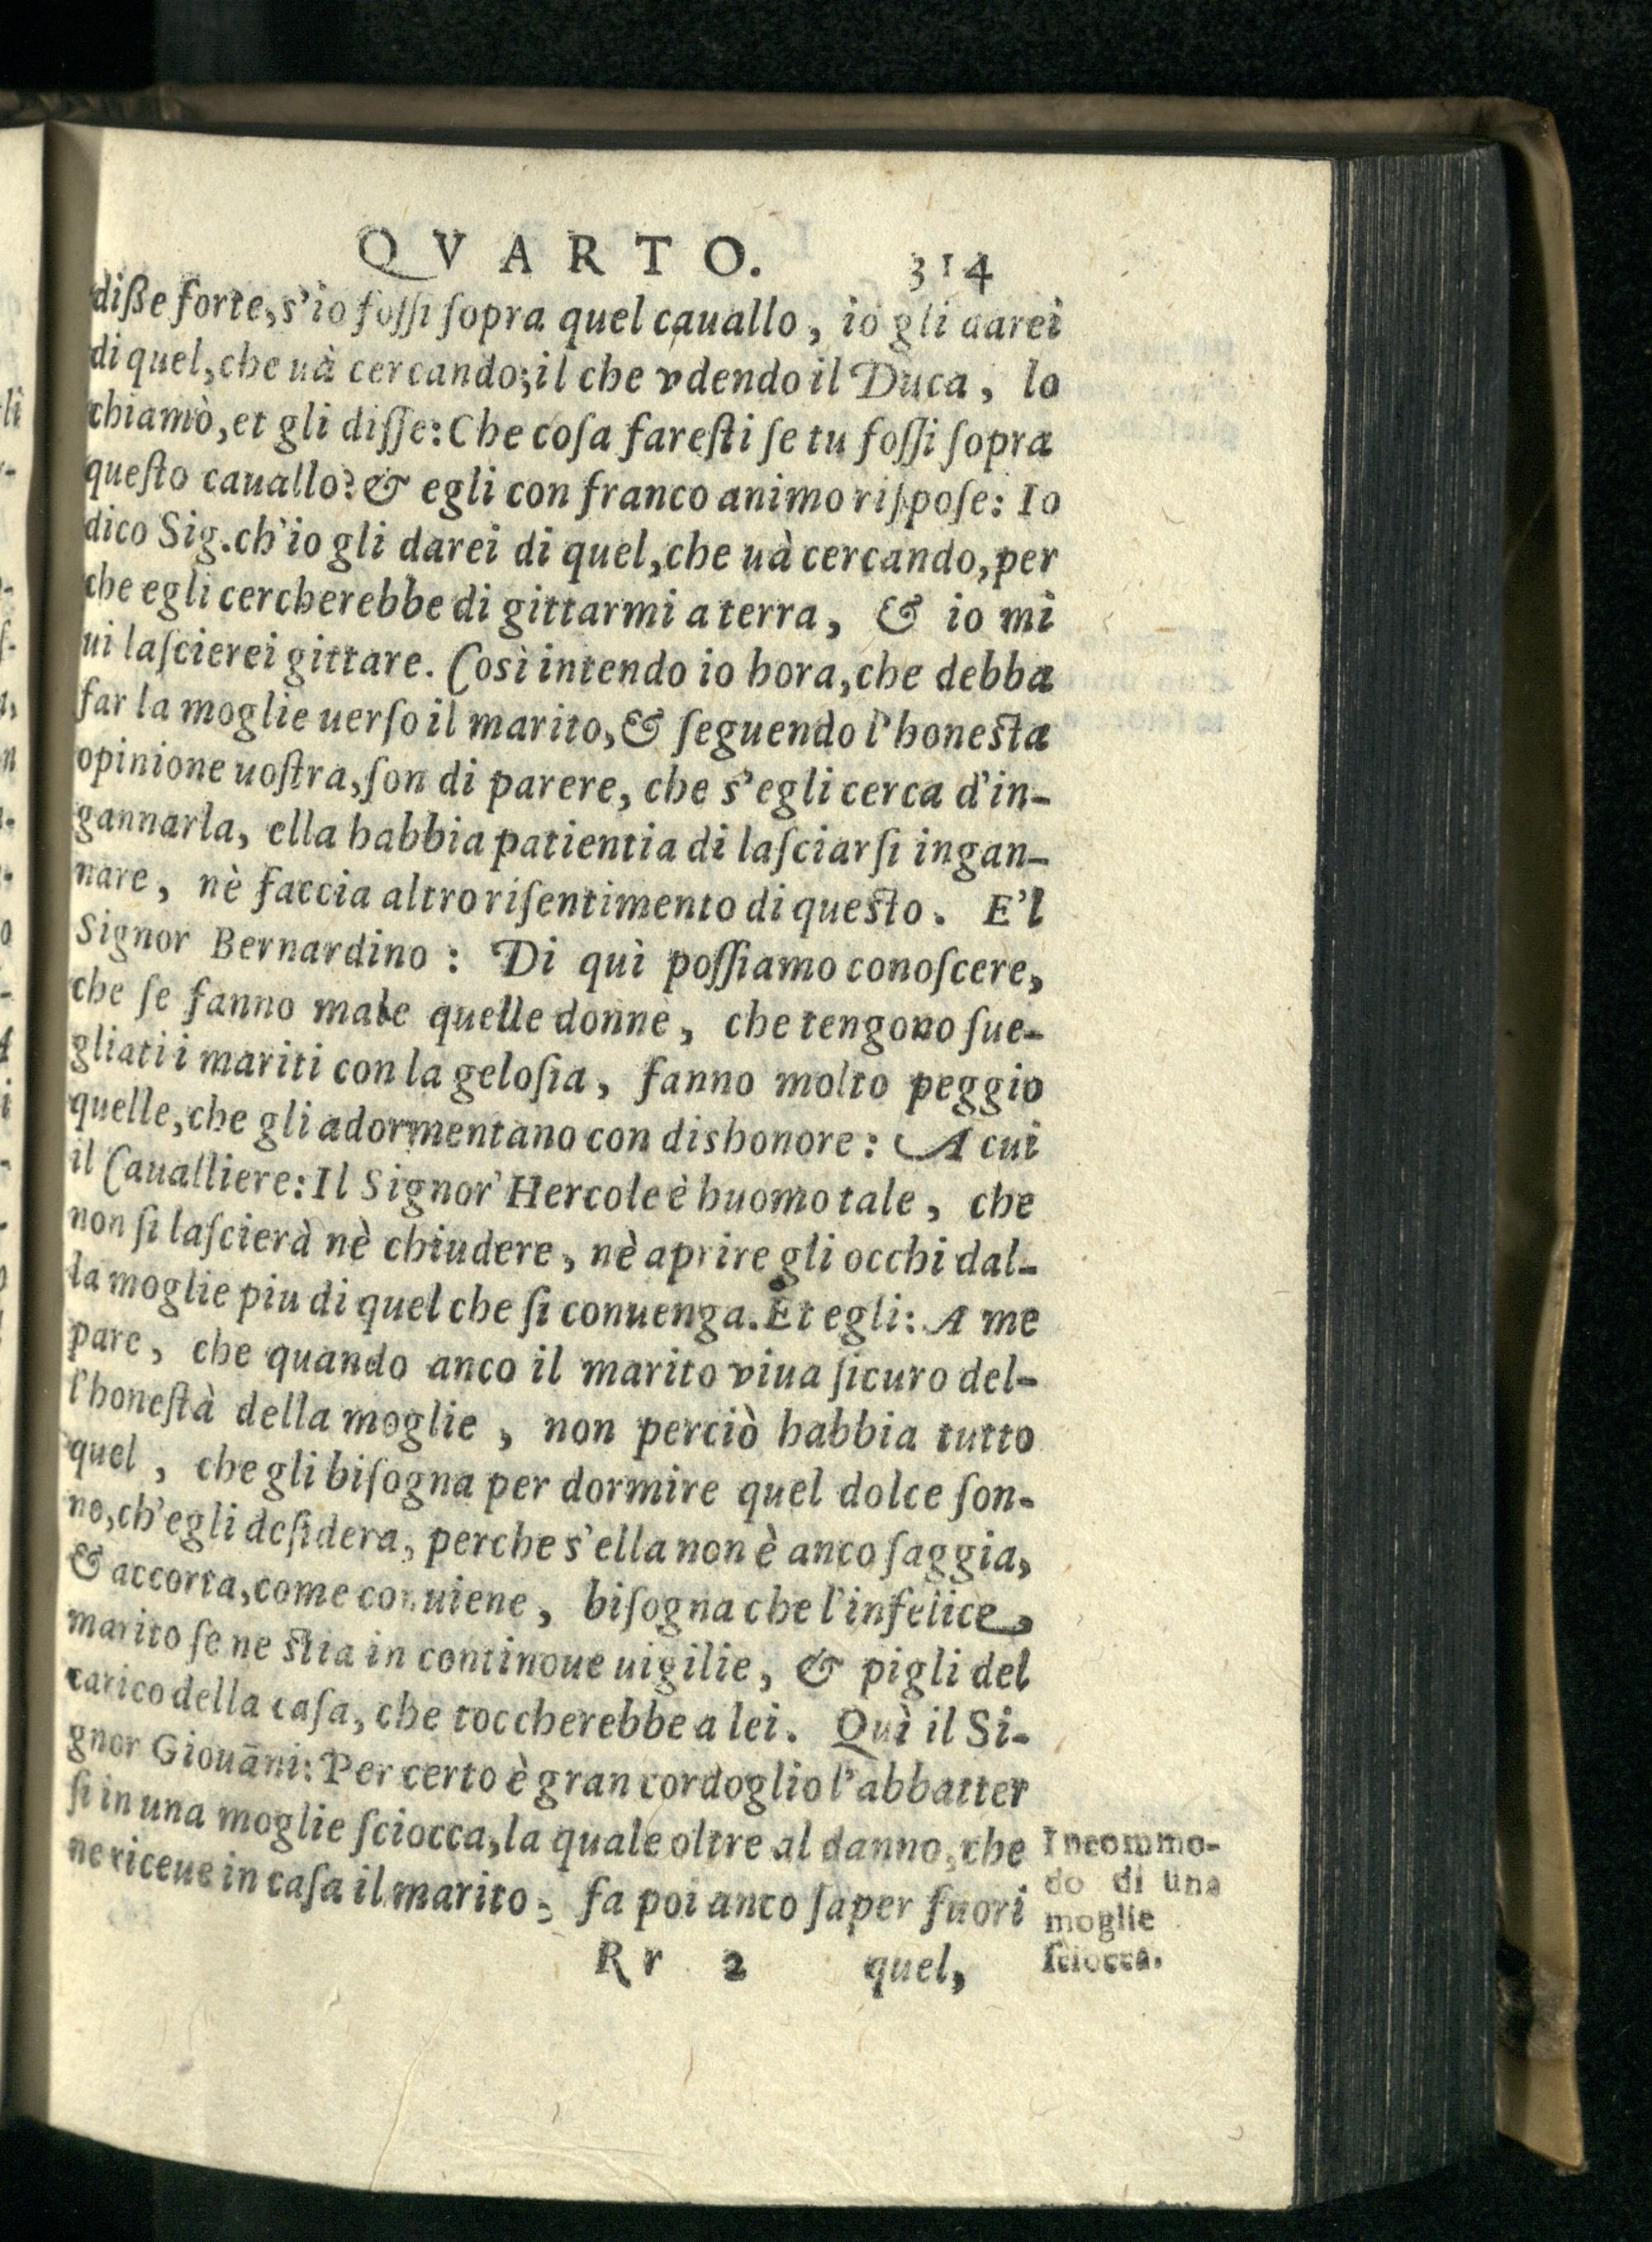 QVARTO. 314
diße forte, s'io foſſi ſopra quel cauallo, io gli darei
di quel, che uà cercando; il che vdendo il Duca, lo
chiamò, et gli diſſe: Che coſa fareſti ſe tu foſſi ſopra
queſto cauallo? & egli con franco animo riſpoſe: Io
dico Sig. ch'io gli darei di quel, che uà cercando, per
che egli cercherebbe di gittarmi a terra, & io mi
ui laſcierei gittare. Così intendo io hora, che debba
far la moglie uerſo il marito, & ſeguendo l'honeſta
opinione uoſtra, ſon di parere, che s'egli cerca d'in-
gannarla, ella habbia patientia di laſciarſi ingan-
nare, nè faccia altro riſentimento di queſto. E'l
Signor Bernardino: Di quì poſſiamo conoſcere,
che ſe fanno male quelle donne, che tengono ſue-
gliati i mariti con la geloſia, fanno molto peggio
quelle, che gli adormentano con dishonore: A cui
il Caualliere: Il Signor' Hercole è huomo tale, che
non ſi laſcierà nè chiudere, nè aprire gli occhi dal-
la moglie piu di quel che ſi conuenga. Et egli: A me
pare, che quando anco il marito viua ſicuro del-
l'honeſtà della moglie, non perciò habbia tutto
quel, che gli biſogna per dormire quel dolce ſon-
no, ch'egli deſidera, perche s'ella non è anco ſaggia,
& accorta, come conuiene, biſogna che l'infelice,
marito ſe ne ſtia in continoue uigilie, & pigli del
carico della caſa, che toccherebbe a lei. Quì il Si-
gnor Giouāni: Per certo è gran cordoglio l'abbatter
ſi in una moglie ſciocca, la quale oltre al danno, che
ne riceue in caſa il marito, fa poi anco ſaper fuori
Incommo-
do di una
moglie
ſciocca.
Rr 2 quel,